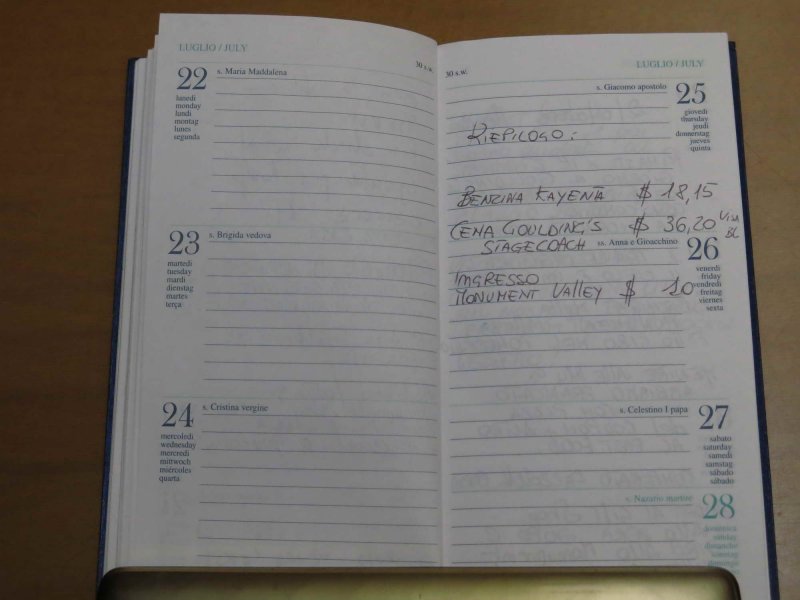 LUGLIO / JULY
30 s.w.
22
s. Maria Maddalena
lunedì
monday
lundi
montag
lunes
segunda
23
s. Brigida vedova
martedì
tuesday
mardi
dienstag
martes
terça
24
s. Cristina vergine
mercoledì
wednesday
mercredi
mittwoch
miércoles
quarta
30 s.w.
LUGLIO / JULY
s. Giacomo apostolo
25
giovedì
thursday
jeudi
donnerstag
jueves
quinta
RIEPILOGO:
BENZINA KAYENTA $ 18,15
CENA GOULDING'S $ 36,20 VISA
STAGECOACH BL
ss. Anna e Gioacchino
26
venerdì
friday
vendredi
freitag
viernes
sexta
INGRESSO
MONUMENT VALLEY $ 10
s. Celestino I papa
27
sabato
saturday
samedi
samstag
sábado
sábado
s. Nazario martire
28
domenica
sunday
dimanche
sonntag
domingo